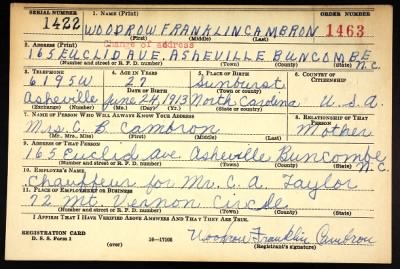 SERIAL NUMBER 1. NAME (Print) ORDER NUMBER
1422 WOODROW FRANKLIN CAMBRON 1463
(First) (Middle) (Last)
2. ADDRESS (Print) Change of address
165 EUCLID AVE. ASHEVILLE BUNCOMBE N.C.
(Number and street or R. F. D. number) (Town) (County) (State)
3. TELEPHONE 4. AGE IN YEARS 5. PLACE OF BIRTH 6. COUNTRY OF CITIZENSHIP
6195W 27 Sunburst
DATE OF BIRTH (Town or county)
Asheville June 24, 1913 North Carolina U.S.A.
(Exchange) (Mo.) (Day) (Yr.) (State or country)
7. NAME OF PERSON WHO WILL ALWAYS KNOW YOUR ADDRESS 8. RELATIONSHIP OF THAT PERSON
Mrs. C. B. Cambron Mother
(Mr., Mrs., Miss) (First) (Middle) (Last)
9. ADDRESS OF THAT PERSON
165 Euclid ave Asheville Buncombe N.C.
(Number and street or R. F. D. number) (Town) (County) (State)
10. EMPLOYER'S NAME
Chauffeur for Mr. C. A. Taylor
11. PLACE OF EMPLOYMENT OR BUSINESS
72 Mt. Vernon Circle
(Number and street or R. F. D. number) (Town) (County) (State)
I AFFIRM THAT I HAVE VERIFIED ABOVE ANSWERS AND THAT THEY ARE TRUE.
REGISTRATION CARD
D. S. S. Form 1 (over) 16—17105 Woodrow Franklin Cambron
(Registrant's signature)